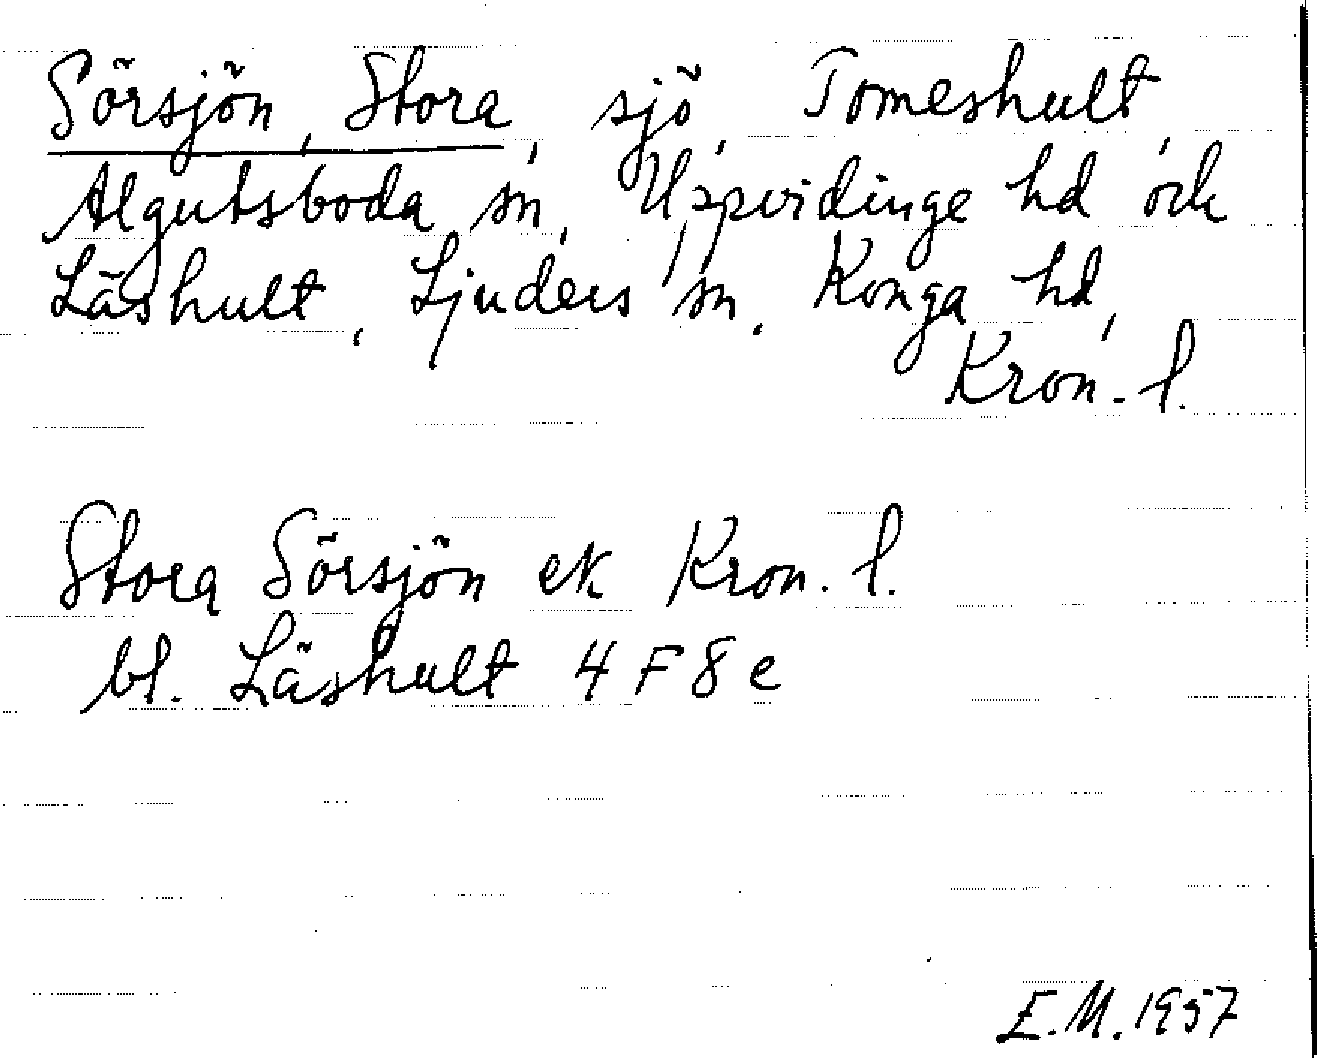 Sörsjön, Stora, sjö, Tomeshult,
Algutsboda sn, Uppvidinge hd och
Läshult, Ljuders sn, Konga hd,
Kron. l.
Stora Sörsjön ek Kron. l.
bl. Läshult 4 F 8 e
E.M. 1957